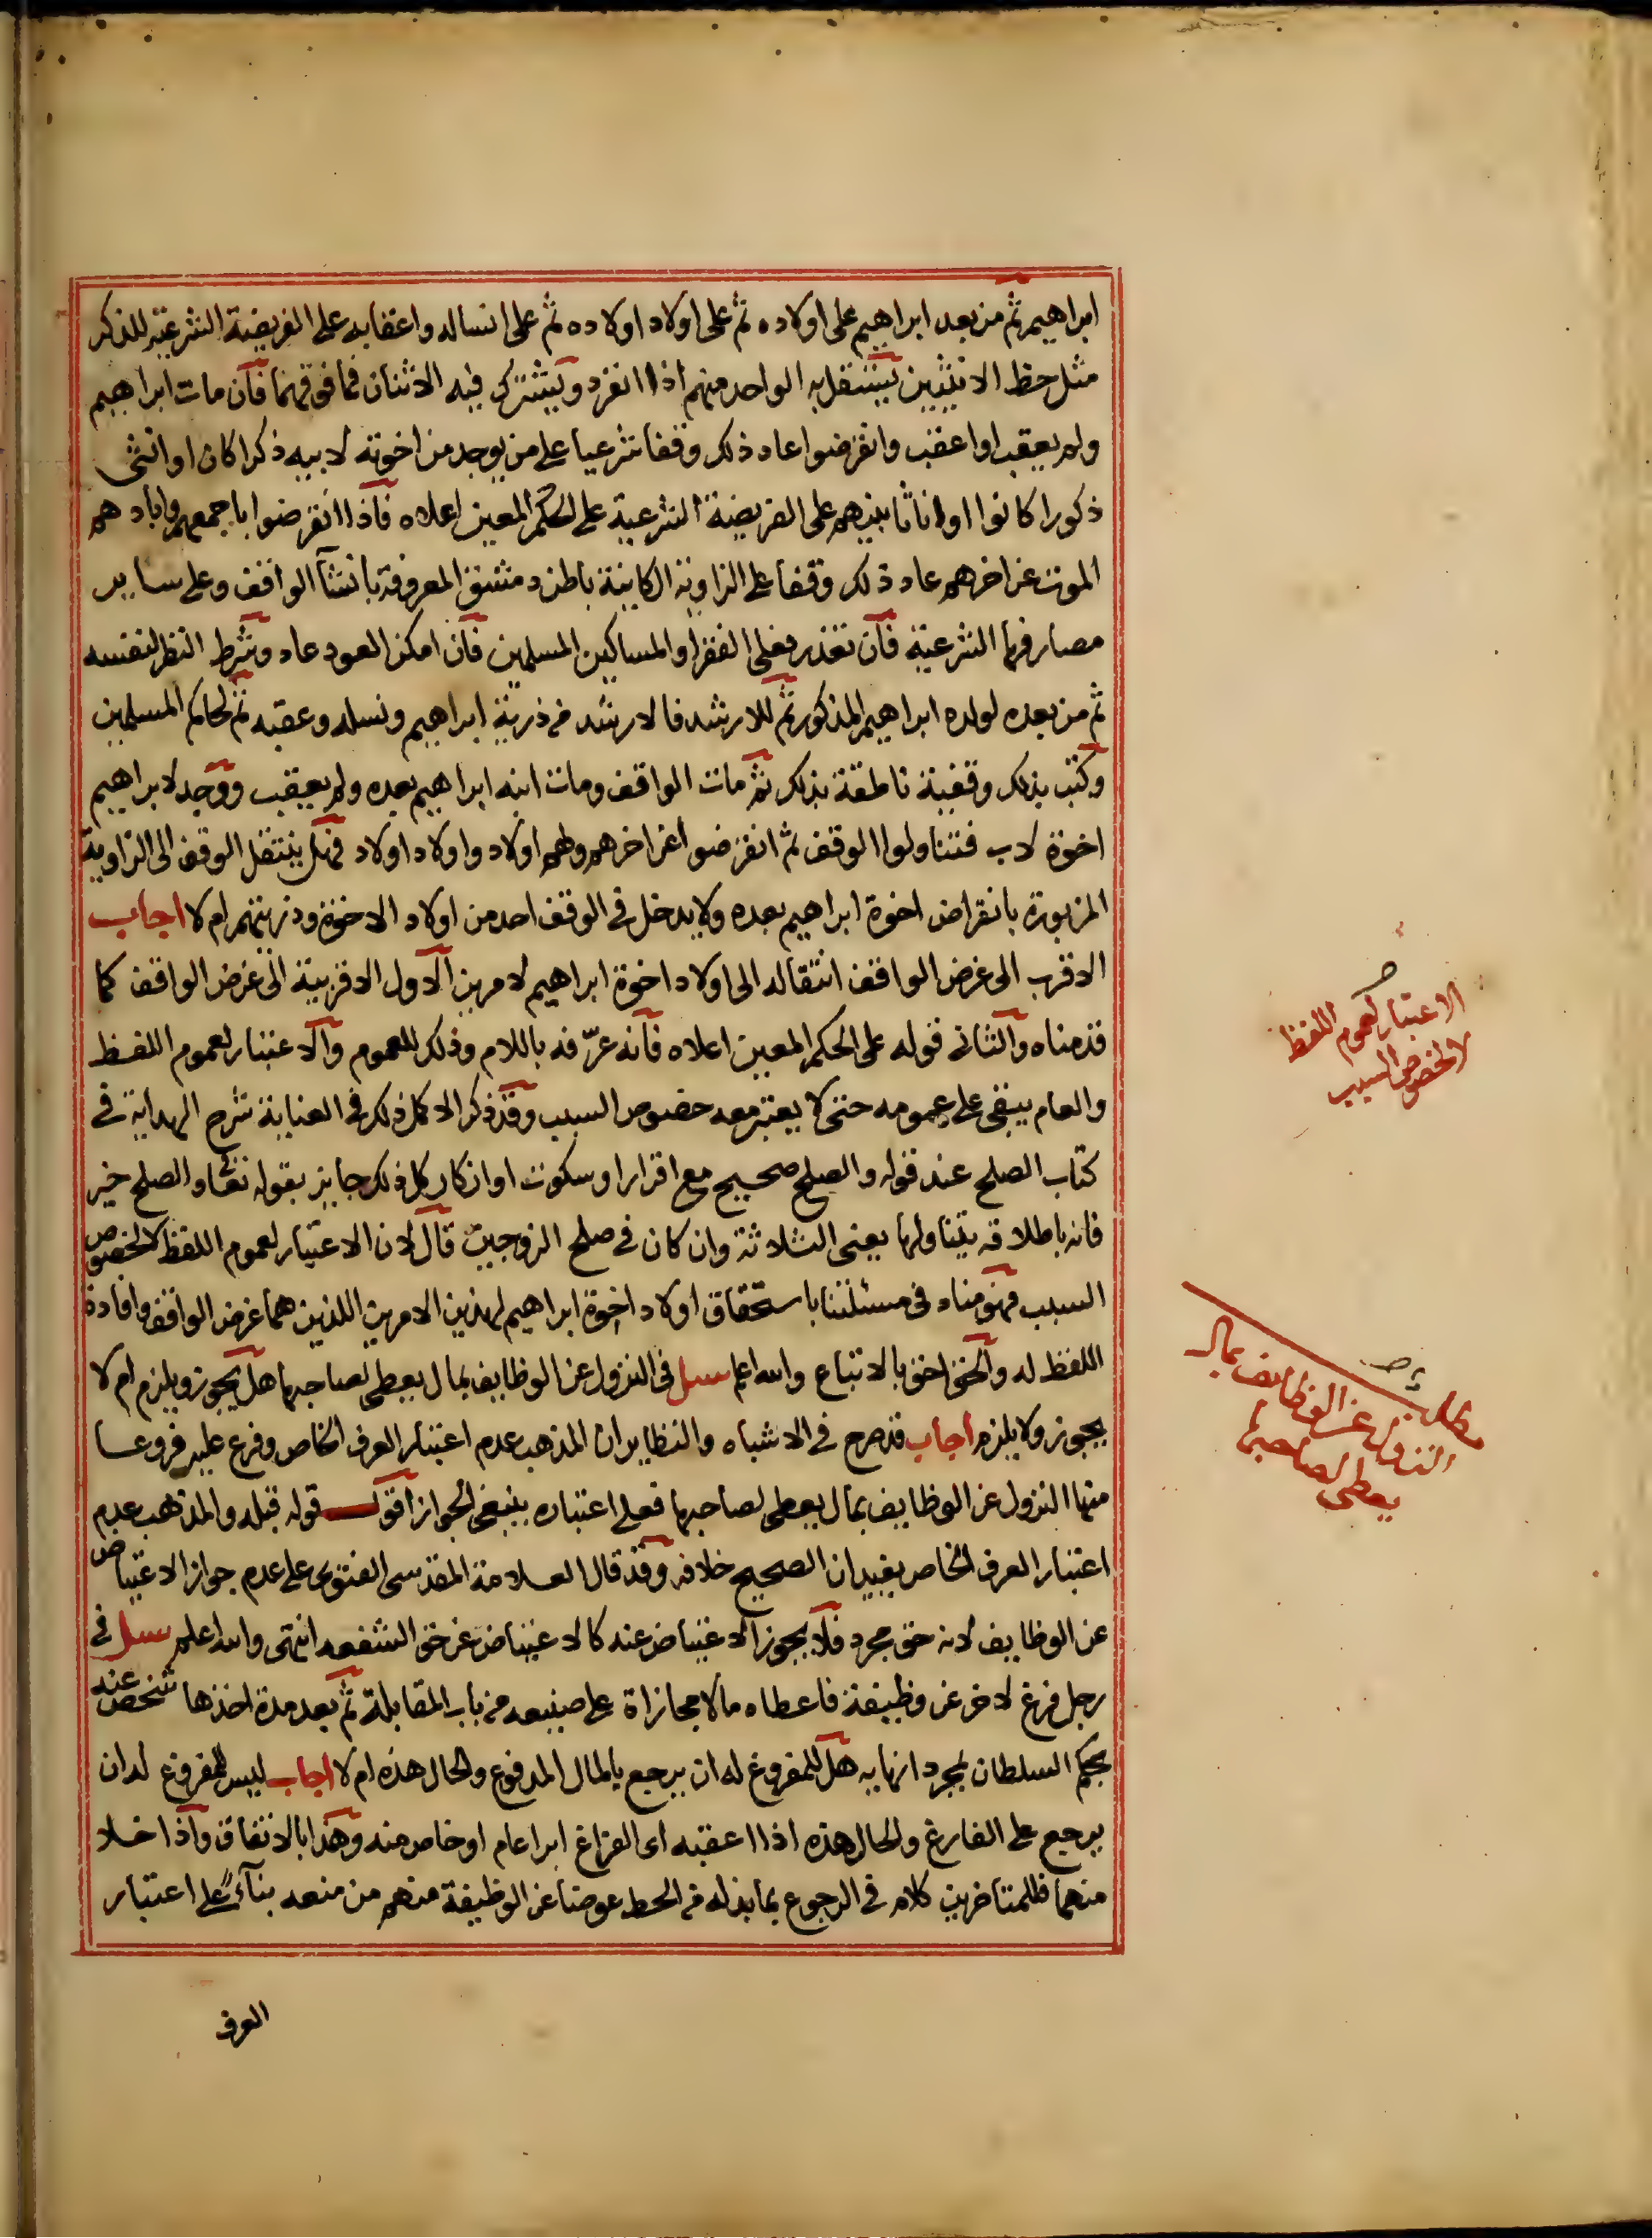 ابراهيم ثم من بعد ابراهيم على اولاده ثم على اولاد اولاده ثم على انساله واعقابه على الفريضة الشرعية للذكر
مثل حظ الانثيين يستقل به الواحد منهم اذا انفرد ويشترك فيه الاثنان فما فوقهما فان مات ابراهيم
ولم يعقب او اعقب وانقرضوا عاد ذلك وقفا شرعيا على من يوجد من اخوته لابيه ذكرا كان او انثى
ذكورا كانوا او اناثا بينهم على الفريضة الشرعية على الحكم المعين اعلاه فاذا انقرضوا باجمعهم وابادهم
الموت عن اخرهم عاد ذلك وقفا على الزاوية الكاينة باطن دمشق المعروفة بانشآ الواقف وعلى ساير
مصارفها الشرعية فان تعذر فعلى الفقرا والمساكين المسلمين فان امكن العود عاد وشرط النظر لنفسه
ثم من بعده لولده ابراهيم المذكور ثم للارشد فالارشد من ذرية ابراهيم ونسله وعقبه ثم لحاكم المسلمين
وكتب بذلك وقفية ناطقة بذلك ثم مات الواقف ومات ابنه ابراهيم بعده ولم يعقب ووجد لابراهيم
اخوة لاب فتناولوا الوقف ثم انقرضوا عن اخرهم ولهم اولاد واولاد اولاد فهل ينتقل الوقف الى الزاوية
المزبورة بانقراض اخوة ابراهيم بعده ولا يدخل في الوقف احد من اولاد الاخوة وذريتهم ام لا اجاب
الاقرب الى غرض الواقف انتقاله الى اولاد اخوة ابراهيم لامرين الاول الاقربية الى غرض الواقف كما
قدمناه والثاني قوله على الحكم المعين اعلاه فانه عرّفه باللام وذلك للعموم والاعتبار لعموم اللفظ
والعام يبقى على عمومه حتى لا يعتبر معه خصوص السبب وقد ذكر الاكمل ذلك في العناية شرح الهداية في
كتاب الصلح عند قوله والصلح صحيح مع اقرار او سكوت او انكار كل ذلك جايز بقوله تعا والصلح خير
فانه باطلاقه يتناولها يعني الثلاثة وان كان في صلح الزوجين قال لان الاعتبار لعموم اللفظ لا لخصوص
السبب فهومناه في مسئلتنا باستحقاق اولاد اخوة ابراهيم لهذين الامرين اللذين هما غرض الواقف وافادة
اللفظ له والحق احق بالاتباع والله اعلم سئل في النزول عن الوظايف بمال يعطى لصاحبها هل يجوز ويلزم ام لا
يجوز ولا يلزم اجاب قد صرح في الاشباه والنظاير ان المذهب عدم اعتبار العرف الخاص وفرع عليه فروعا
منها النزول عن الوظايف بمال يعطى لصاحبها فعلى اعتباره ينبغي الجواز اقول قوله قبله والمذهب عدم
اعتبار العرف الخاص يفيد ان الصحيح خلافه وقد قال العلامة المقدسى الفتوى على عدم جواز الاعتياض
عن الوظايف لانه حق مجرد فلا يجوز الاعتياض عنه كالاعتياض عن حق الشفعه انتهى والله اعلم سئل في
رجل فرغ لاخر عن وظيفة فاعطاه مالا مجازاة على صنيعه من باب المقابلة ثم بعد مدة اخذها شخص عنه
بحكم السلطان بمجرد انهايه هل للمفروغ له ان يرجع بالمال المدفوع والحال هذه ام لا اجاب ليس للمفروغ له ان
يرجع على الفارغ والحال هذه اذا اعقبه اى الفراغ ابرا عام او خاص منه وهذا بالاتفاق واذا خلا
منهما فللمتاخرين كلام في الرجوع بما بذله من الحط عوضا عن الوظيفة منهم من منعه بنآءً على اعتبار
العرف
الاعتبار لعموم اللفظ
لا لخصوص السبب
مطلب
النزول عن الوظايف بمال
يعطى لصاحبها